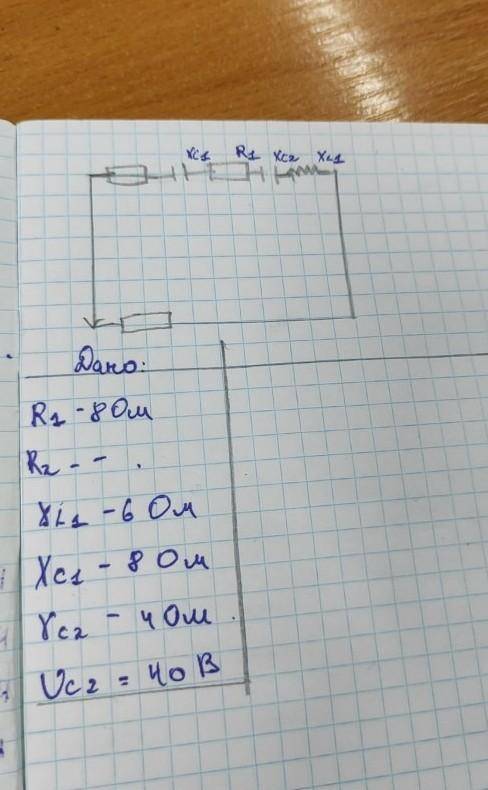 Xc1 R1 Xc2 XL1
Дано:
R1 - 8 Ом
R2 - - .
XL1 - 6 Ом
Xc1 - 8 Ом
Xc2 - 4 Ом
Uc2 = 40 В